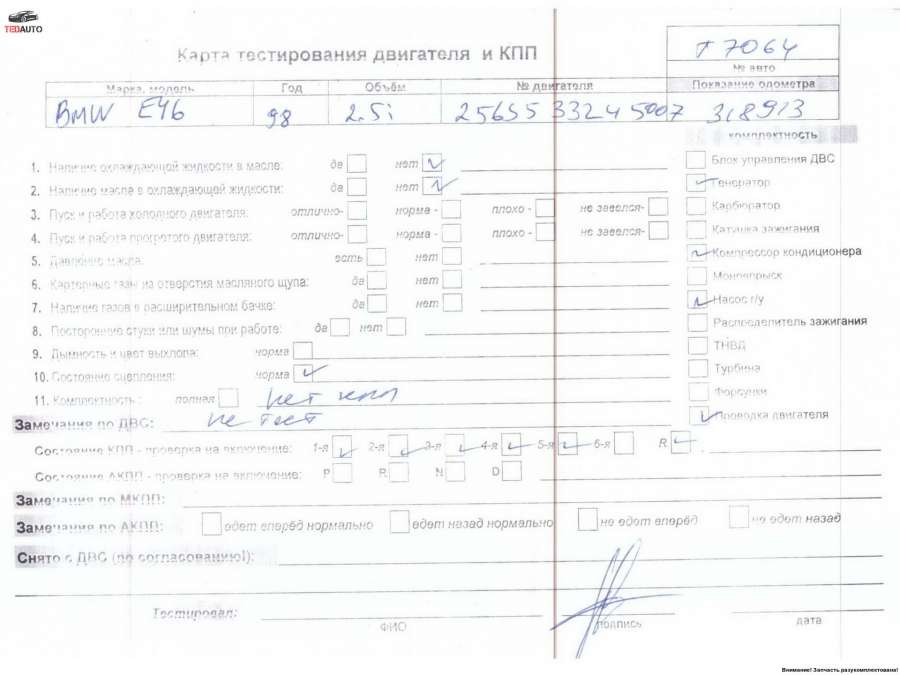 TEDAUTO
Карта тестирования двигателя и КПП
Т 7064
№ авто
Марка, модель Год Объём № двигателя Показание одометра
BMW E46 98 2.5i 256S5 33245007 318913
комплектность
1. Наличие охлаждающей жидкости в масле: да нет
2. Наличие масла в охлаждающей жидкости: да нет
3. Пуск и работа холодного двигателя: отлично- норма - плохо - не завелся-
4. Пуск и работа прогретого двигателя: отлично- норма - плохо - не завелся-
5. Давление масла: есть нет
6. Картерные газы из отверстия масляного щупа: да нет
7. Наличие газов в расширительном бачке: да нет
8. Посторонние стуки или шумы при работе: да нет
9. Дымность и цвет выхлопа: норма
10. Состояние сцепления: норма
11. Комплектность : полная нет кпп
Блок управления ДВС
Генератор
Карбюратор
Катушка зажигания
Компрессор кондиционера
Моновпрыск
Насос г/у
Распределитель зажигания
ТНВД
Турбина
Форсунки
Проводка двигателя
Замечания по ДВС: не тест
Состояние КПП - проверка на включение: 1-я 2-я 3-я 4-я 5-я 6-я R
Состояние АКПП - проверка на включение: P R N D
Замечания по МКПП:
Замечания по АКПП: едет вперёд нормально едет назад нормально не едет вперёд не едет назад
Снято с ДВС (по согласованию!):
Тестировал:
ФИО подпись дата
Внимание! Запчасть разукомплектована!